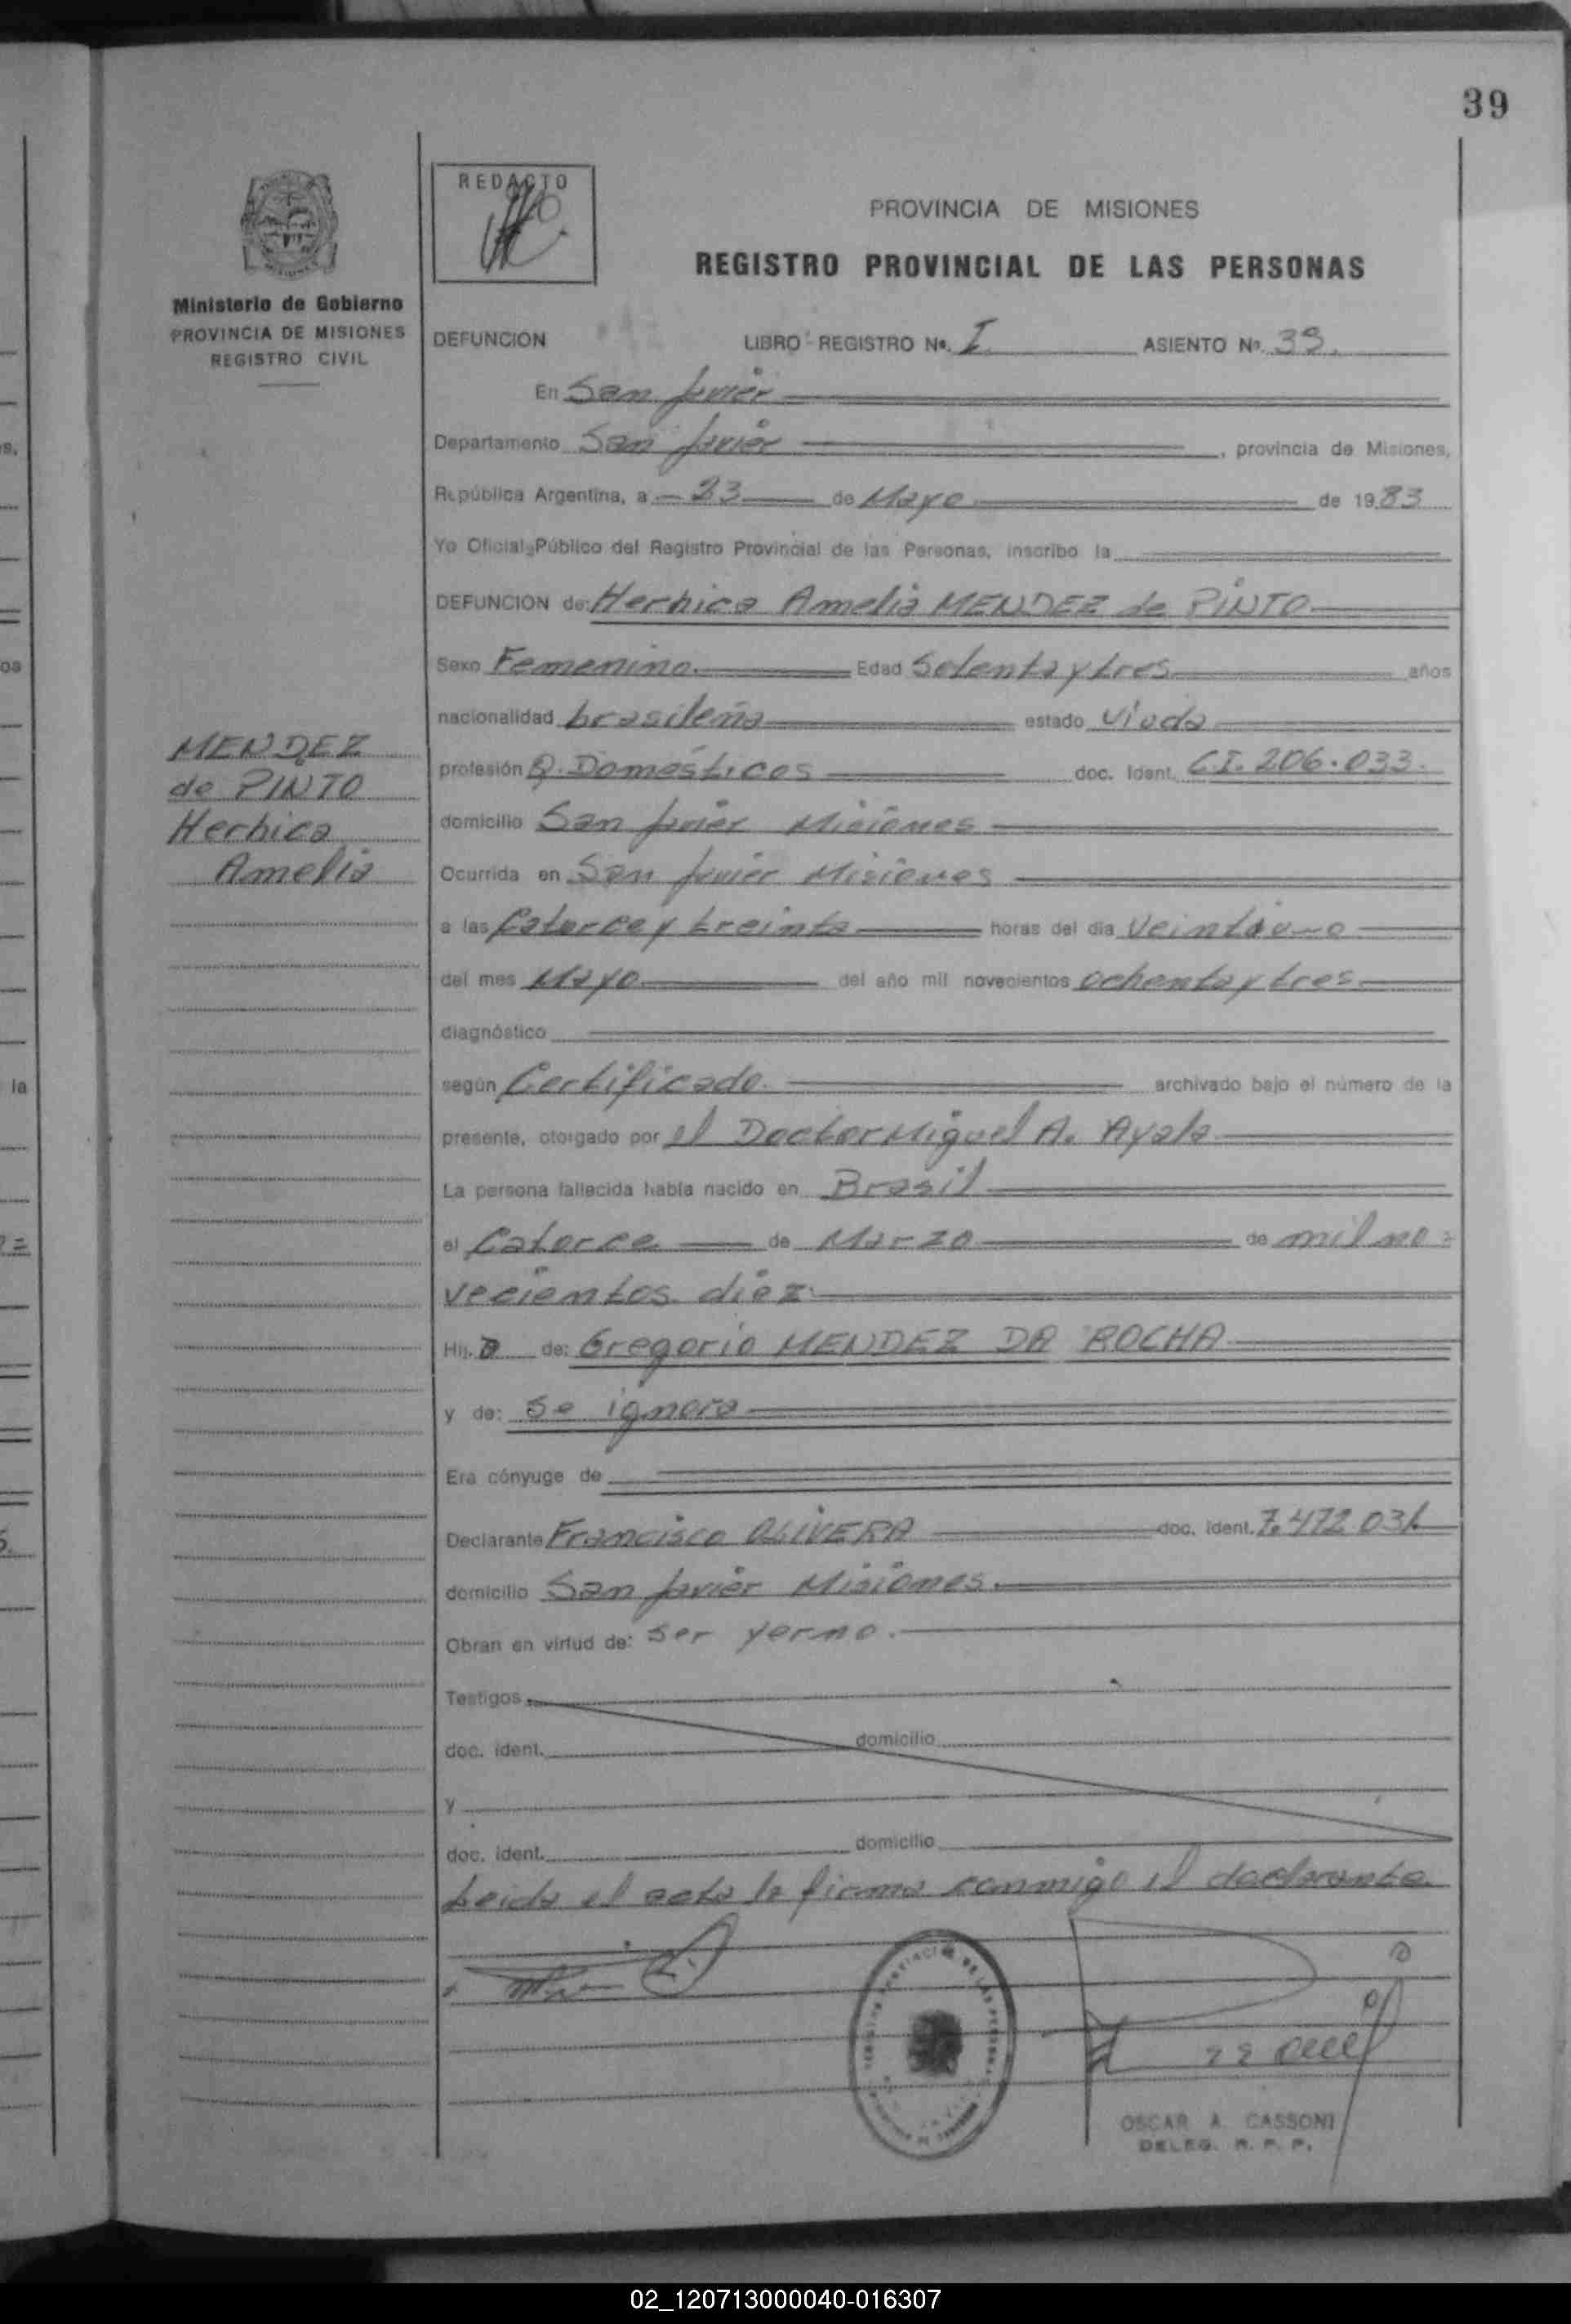 39
REDACTO
PROVINCIA DE MISIONES
REGISTRO PROVINCIAL DE LAS PERSONAS
Ministerio de Gobierno
PROVINCIA DE MISIONES
REGISTRO CIVIL
DEFUNCION LIBRO - REGISTRO Nº. I ASIENTO Nº. 39.
En San Javier
Departamento San Javier, provincia de Misiones,
República Argentina, a 23 de Mayo de 1983
Yo Oficial Público del Registro Provincial de las Personas, inscribo la
DEFUNCION de: Herhica Amelia MENDEZ de PINTO
Sexo Femenino. Edad Setenta y tres años
nacionalidad brasileña estado Viuda
profesión Q. Domésticos doc. Ident. CI. 206.033.
domicilio San Javier Misiones
Ocurrida en San Javier Misiones
a las Catorce y treinta horas del día Veintiuno
del mes Mayo del año mil novecientos ochenta y tres
diagnóstico
según Certificado. archivado bajo el número de la
presente, otorgado por el Doctor Miguel A. Ayala
La persona fallecida había nacido en Brasil
el Catorce de Marzo de mil no=
vecientos diez
Hij. a de: Gregorio MENDEZ DA ROCHA
y de: Se ignora
Era cónyuge de
Declarante Francisco OLIVERA doc. ident. 7.472.031
domicilio San Javier Misiones.
Obran en virtud de: Ser yerno.
Testigos
doc. ident. domicilio
y
doc. ident. domicilio
Leida el acta la firma conmigo el declarante
MENDEZ
de PINTO
Herhica
Amelia
OSCAR A. CASSONI
DELEG. R. P. P.
02_120713000040-016307